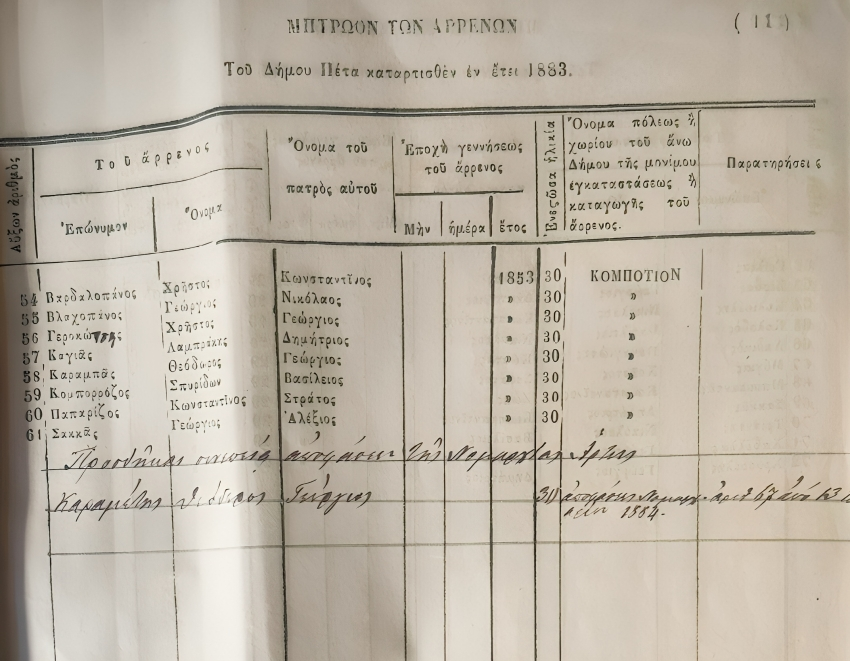 ΜΗΤΡΩΟΝ ΤΩΝ ΑΡΡΕΝΩΝ
( 11 )
Τοῦ Δήμου Πέτα καταρτισθὲν ἐν ἔτει 1883.
Αὔξων ἀριθμὸς
Τοῦ ἄρρενος
Ἐπώνυμον
Ὄνομα
Ὄνομα τοῦ
πατρὸς αὐτοῦ
Ἐποχὴ γεννήσεως
τοῦ ἄρρενος
Μὴν ἡμέρα ἔτος
Ἐνεστῶσα ἡλικία
Ὄνομα πόλεως ἢ
χωρίου τοῦ ἄνω
Δήμου τῆς μονίμου
ἐγκαταστάσεως ἢ
καταγωγῆς τοῦ
ἄρρενος.
Παρατηρήσεις
54 Βαρδαλοπάνος Χρῆστος Κωνσταντῖνος 1853 30 ΚΟΜΠΟΤΙΟΝ
55 Βλαχοπάνος Γεώργιος Νικόλαος » 30 »
56 Γεροκώστης Χρῆστος Γεώργιος » 30 »
57 Καγιᾶς Λαμπράκης Δημήτριος » 30 »
58 Καραμπᾶς Θεόδωρος Γεώργιος » 30 »
59 Κομπορρόζος Σπυρίδων Βασίλειος » 30 »
60 Παπαρίζος Κωνσταντῖνος Στράτος » 30 »
61 Σακκᾶς Γεώργιος Ἀλέξιος » 30 »
Προσθῆκαι ἀποφάσει τῆς Νομαρχίας Ἄρτης
Καραμέτης Θεόδωρος Γεώργιος 30 ἀριθ 67
1884.